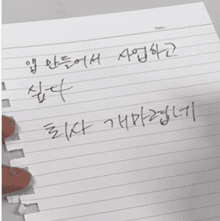 앱 만들어서 사업하고
싶다
퇴사 개마렵네